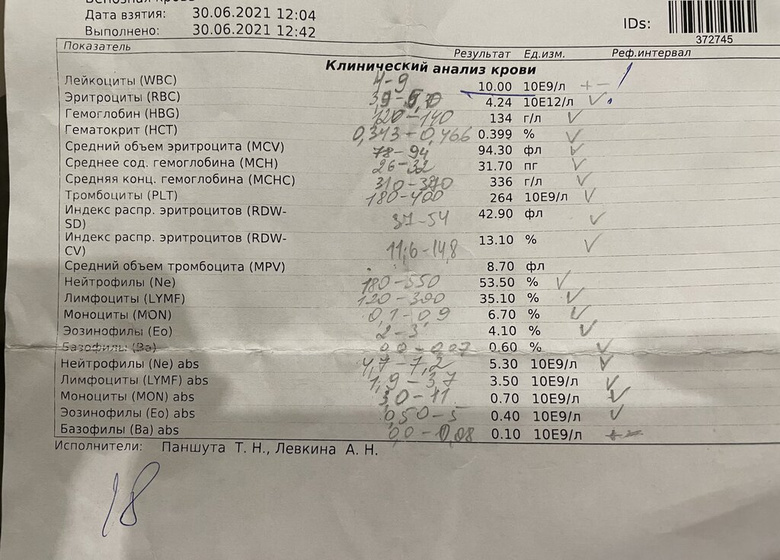 Дата взятия: 30.06.2021 12:04
Выполнено: 30.06.2021 12:42
IDs:
372745
Показатель Результат Ед.изм. Реф.интервал
Клинический анализ крови
Лейкоциты (WBC) 4-9 10.00 10E9/л + -
Эритроциты (RBC) 4.24 10E12/л
Гемоглобин (HBG) 120-140 134 г/л
Гематокрит (HCT) 0,343-0,466 0.399 %
Средний объем эритроцита (MCV) 78-94 94.30 фл
Среднее сод. гемоглобина (MCH) 26-32 31.70 пг
Средняя конц. гемоглобина (MCHC) 336 г/л
Тромбоциты (PLT) 180-400 264 10E9/л
Индекс распр. эритроцитов (RDW-
SD) 37-54 42.90 фл
Индекс распр. эритроцитов (RDW-
CV) 11,6-14,8 13.10 %
Средний объем тромбоцита (MPV) 8.70 фл
Нейтрофилы (Ne) 180-550 53.50 %
Лимфоциты (LYMF) 35.10 %
Моноциты (MON) 0,1-0,9 6.70 %
Эозинофилы (Eo) 2-3 4.10 %
Базофилы (Ba) 0.60 %
Нейтрофилы (Ne) abs 4,7-7,2 5.30 10E9/л
Лимфоциты (LYMF) abs 1,9-3,7 3.50 10E9/л
Моноциты (MON) abs 0.70 10E9/л
Эозинофилы (Eo) abs 0.40 10E9/л
Базофилы (Ba) abs 0,0-0,08 0.10 10E9/л
Исполнители: Паншута Т. Н., Левкина А. Н.
18